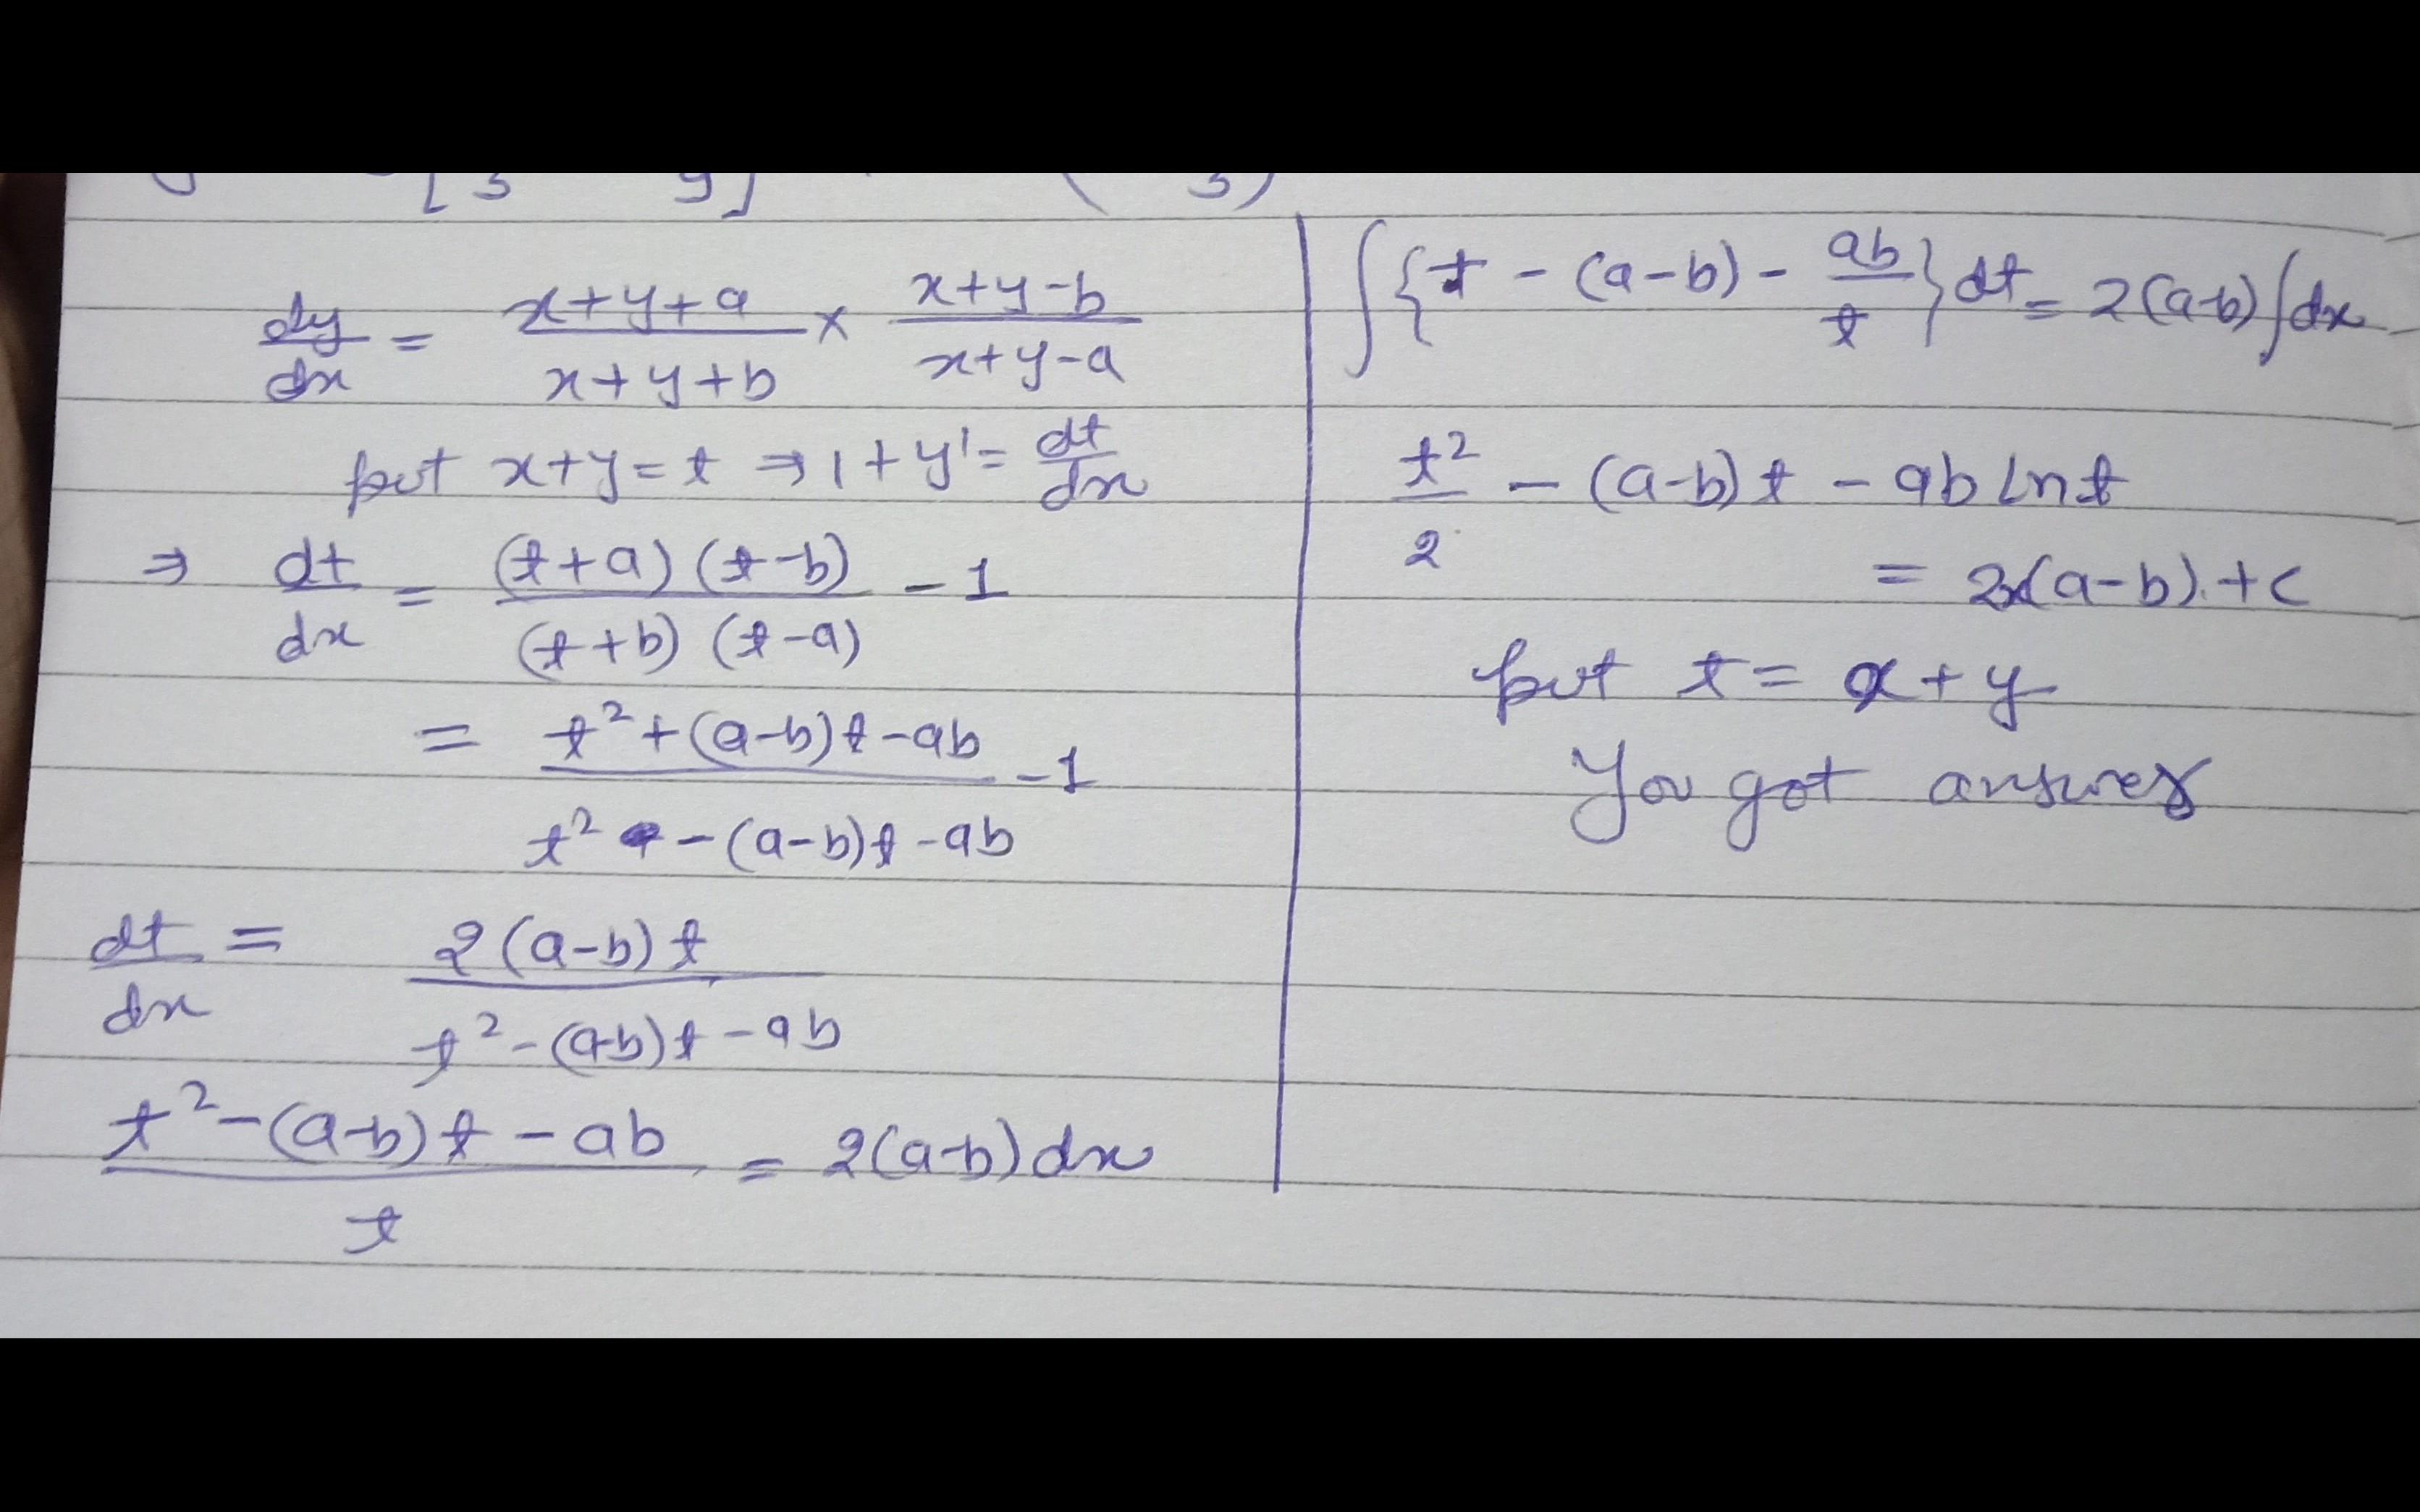 dy/dx = x+y+a / x+y+b × x+y-b / x+y-a
put x+y = t ⇒ 1+y' = dt/dx
⇒ dt/dx = (t+a)(t-b) / (t+b)(t-a) - 1
= t²+(a-b)t-ab / t²-(a-b)t-ab - 1
dt/dx = 2(a-b)t / t²-(a-b)t-ab
t²-(a-b)t-ab / t = 2(a-b)dx
∫{t-(a-b)-ab/t}dt = 2(a-b)∫dx
t²/2 - (a-b)t - ab ln t
= 2x(a-b)+c
put t = x+y
You got answer